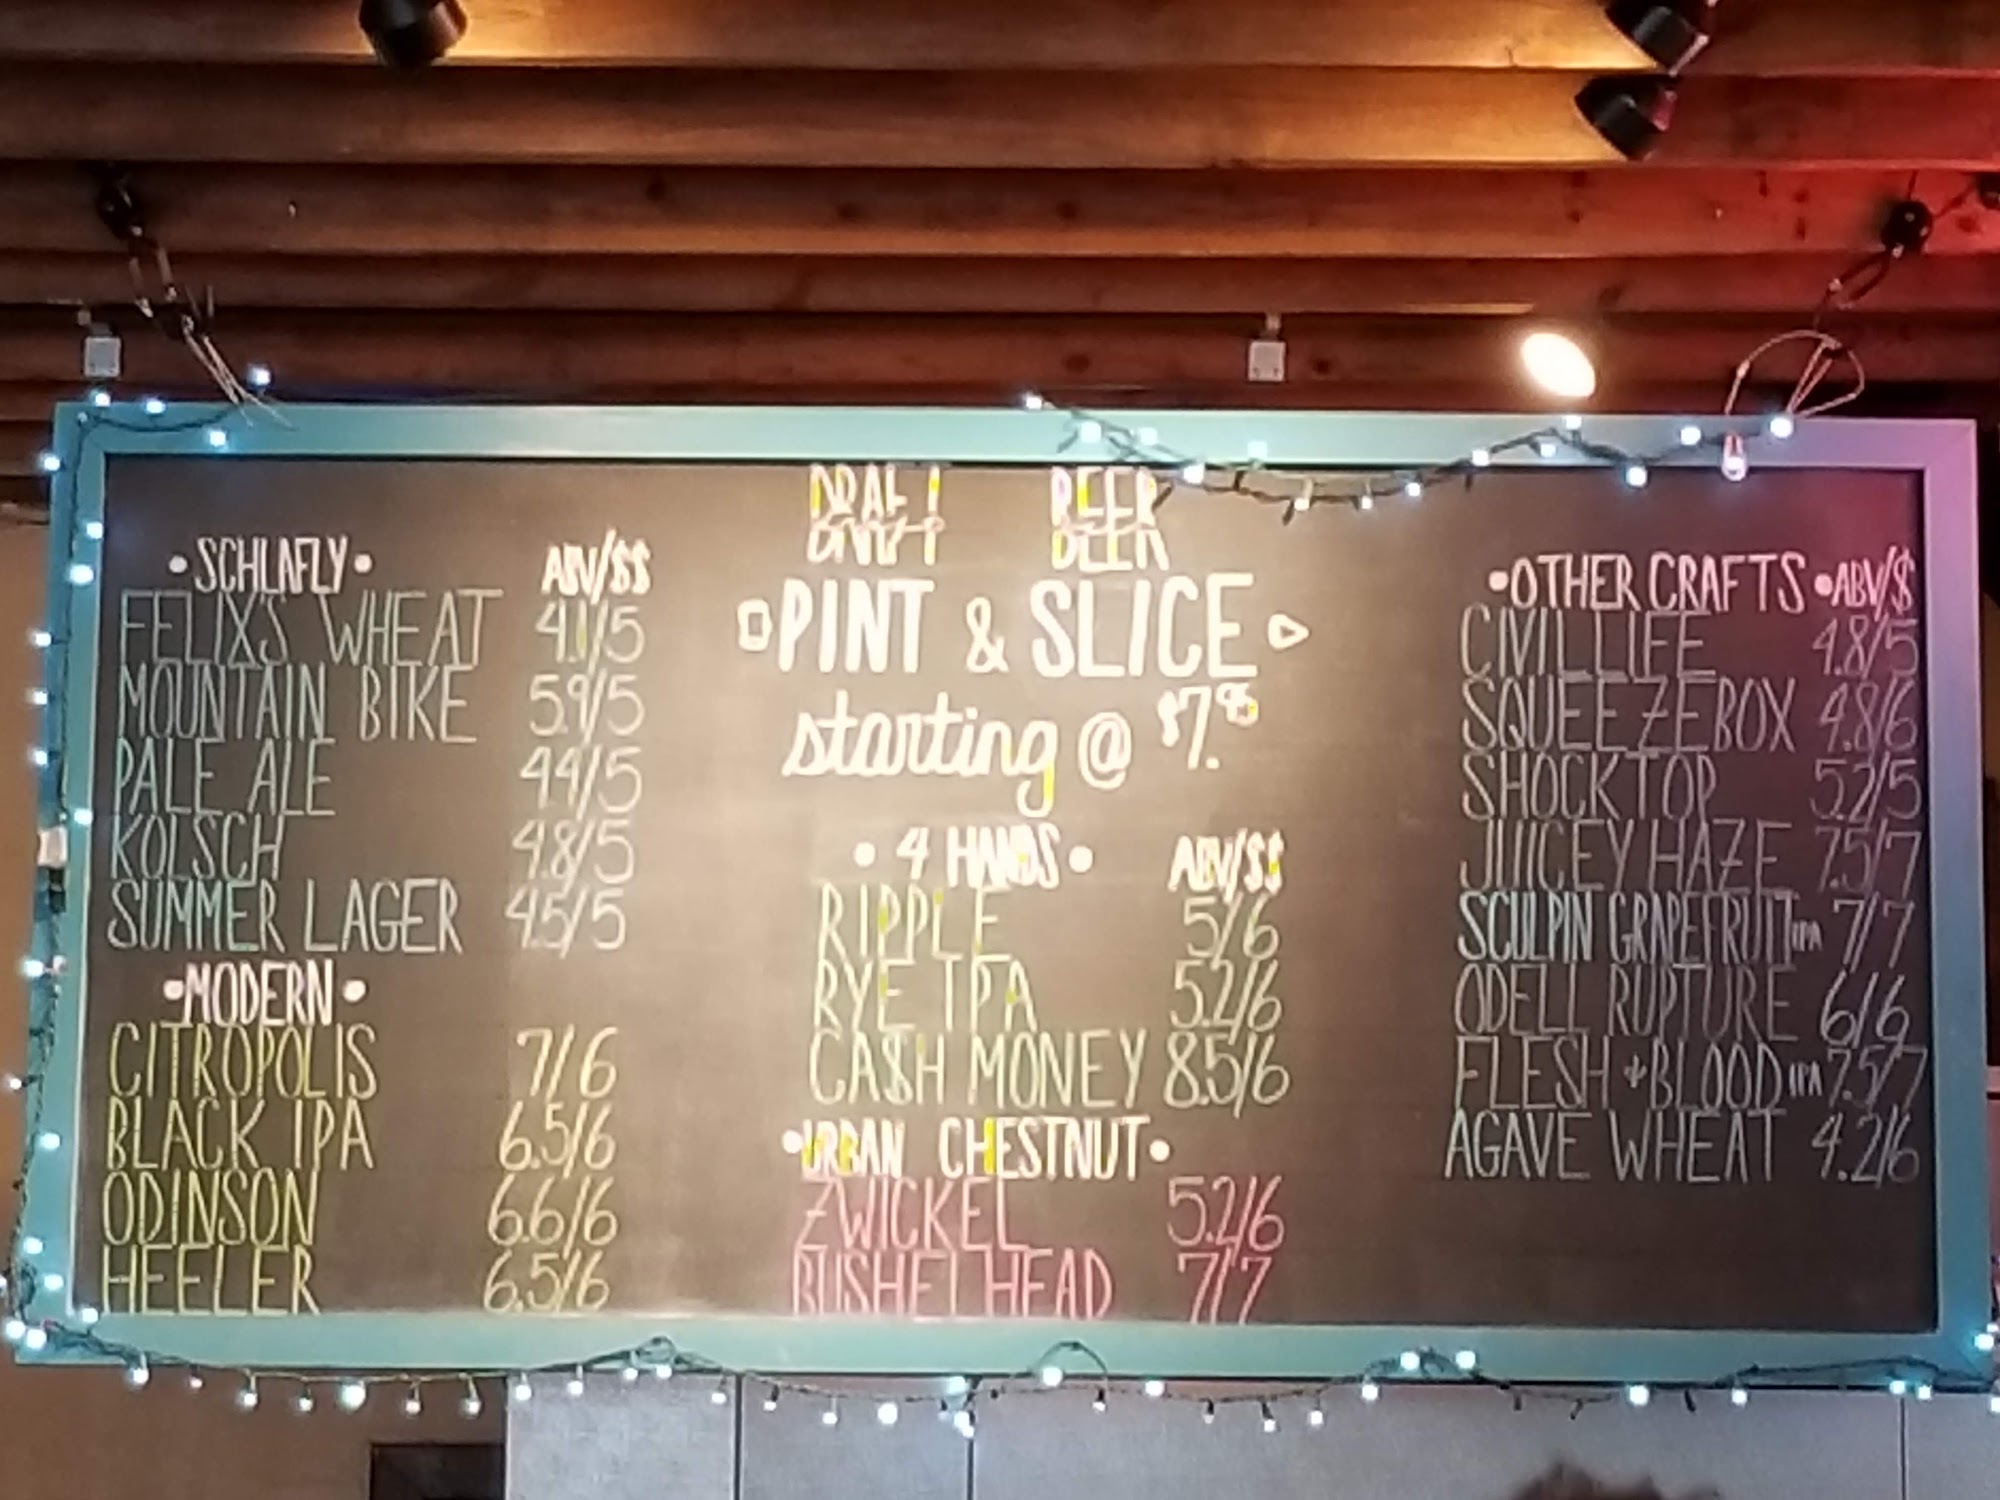 DRAFT BEER
PINT & SLICE
starting @ $7.95
•SCHLAFLY• ABV/$$
FELIX'S WHEAT 4.1/5
MOUNTAIN BIKE 5.9/5
PALE ALE 4.4/5
KOLSCH 4.8/5
SUMMER LAGER 4.5/5
•MODERN•
CITROPOLIS 7/6
BLACK IPA 6.5/6
ODINSON 6.6/6
HEELER 6.5/6
• 4 HANDS • ABV/$$
RIPPLE 5/6
RYE IPA 5.2/6
CA$H MONEY 8.5/6
•URBAN CHESTNUT•
ZWICKEL 5.2/6
BUSHELHEAD 7/7
•OTHER CRAFTS •ABV/$
CIVIL LIFE 4.8/5
SQUEEZEBOX 4.8/6
SHOCKTOP 5.2/5
JUICEY HAZE 7.5/7
SCULPIN GRAPEFRUIT IPA 7/7
ODELL RUPTURE 6/6
FLESH + BLOOD IPA 7.5/7
AGAVE WHEAT 4.2/6